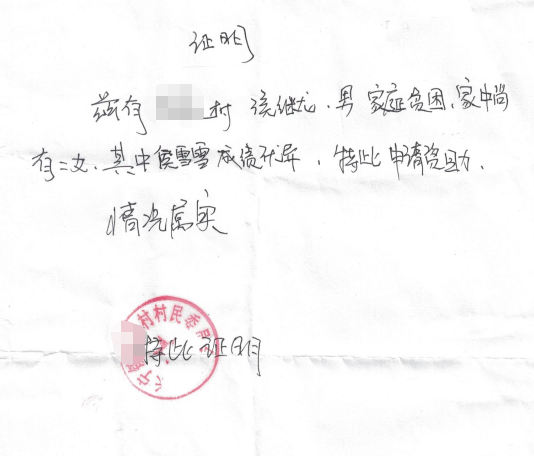 证明
兹有 村 侯继龙，男 家庭贫困，家中尚
有二女、其中侯雪雪成绩优异，特此申请资助，
情况属实
村村民委员
特此证明